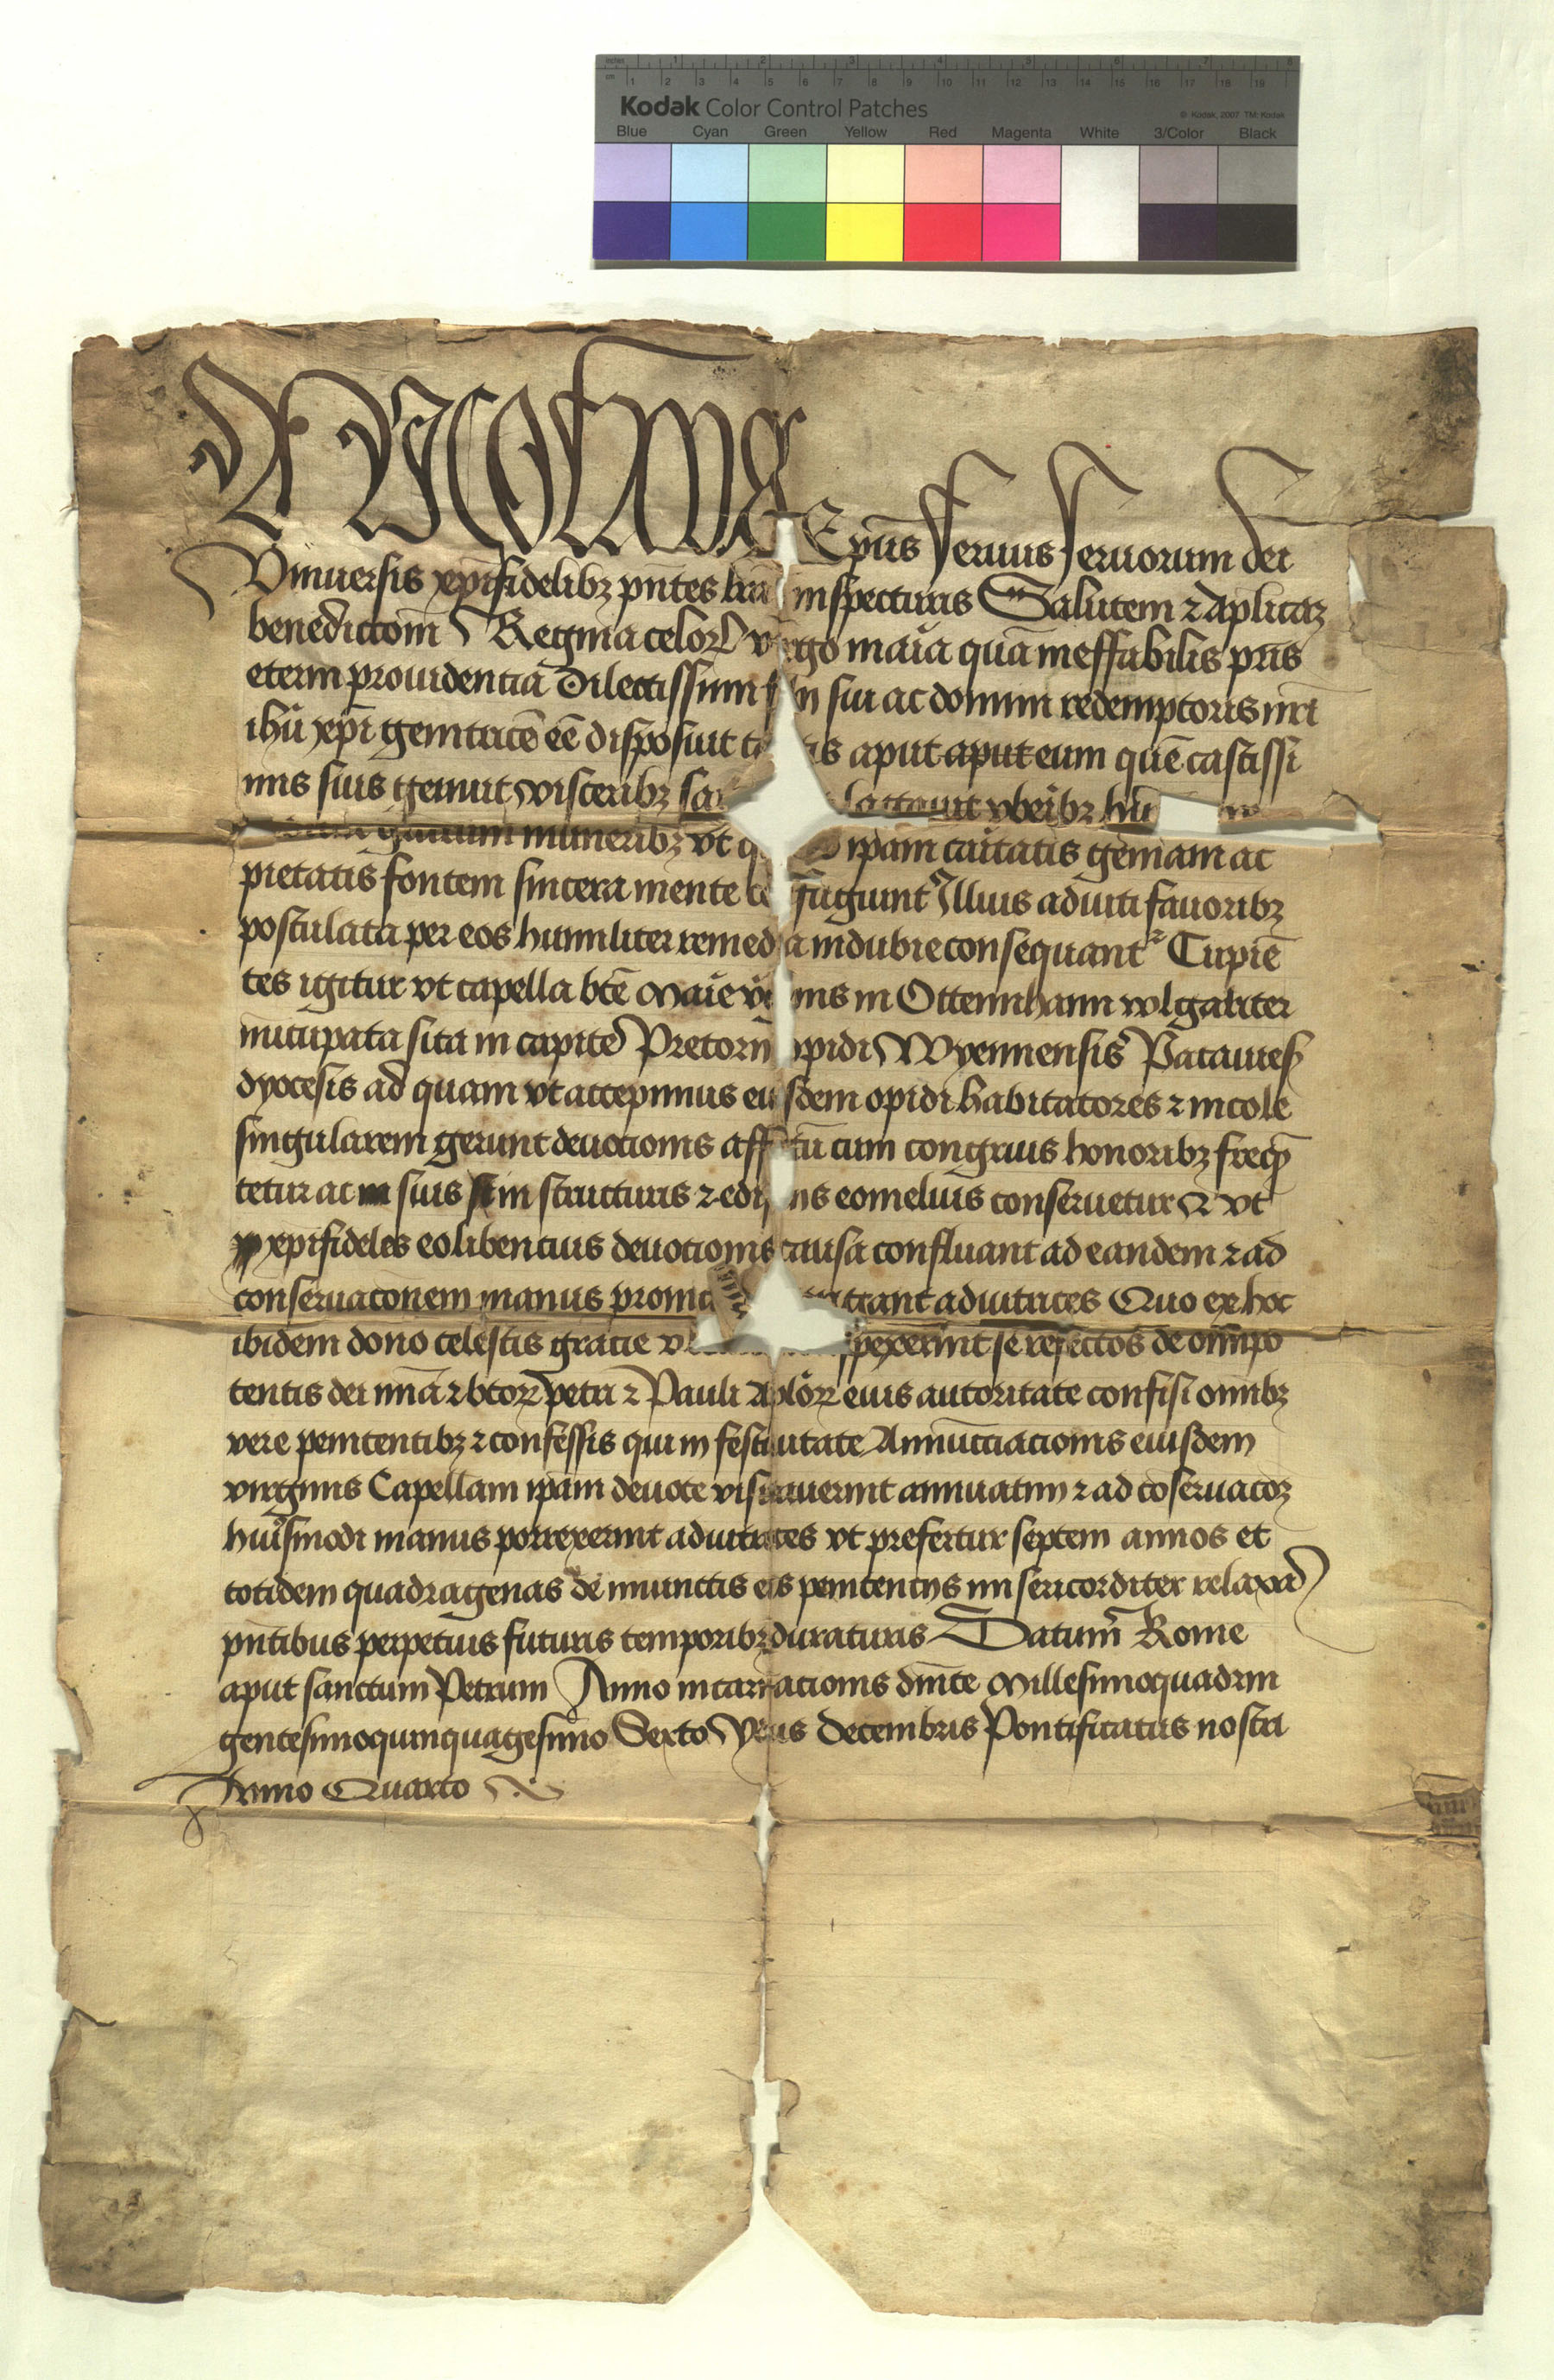 inches 1 2 3 4 5 6 7 8
cm 1 2 3 4 5 6 7 8 9 10 11 12 13 14 15 16 17 18 19
Kodak Color Control Patches © Kodak, 2007 TM: Kodak
Blue Cyan Green Yellow Red Magenta White 3/Color Black
Ep̄us seruus seruorum dei
Vniuersis xp̄ifidelibꝫ pn̄tes inspecturis Salutem ⁊ Aplicaꝫ
benedictōm Regina celoꝝ v go maīa quā ineffabilis pr̄is
eterni prouidentia Dilectissimi sui ac domini redemptoris nr̄i
ihū xp̄i genitricē eē disposuit aput aput eum quē castissi
mis suis genuit visceribꝫ vberibꝫ
muneribꝫ vt ip̄am caritatis gemam ac
pietatis fontem sincera mente fugiunt Illius adiuti fauoribꝫ
postulata per eos humiliter remedia indubie consequant᷑ Cupiē
tes igitur vt capella btē Marie nis in Ottennhann wlgariter
nūcupata sita in capite Pretorii opidi Wyennensis Patauieñ
dyocesis ad quam vt accepimus eiusdem opidi habitatores ⁊ incole
singularem gerunt deuocionis aff tū cum congruis honoribꝫ freqn̄
tetur ac suis in structuris ⁊ edi ns eomelius conseruetur Et vt
xp̄ifideles eo libencius deuocionis causa confluant ad eandem ⁊ ad
conseruaconem manus rigant adiutrices Quo ex hoc
ibidem dono celestis gracie spexerint se refectos de om̄ipo
tentis dei mīa ⁊ btoꝝ Petri ⁊ Pauli Aploꝝ eius autoritate confisi omnibꝫ
vere penitentibꝫ ⁊ confessis qui in festiuitate Annūcciacionis eiusdem
virginis Capellam ip̄am deuote visitauerint annuatim ⁊ ad cōseruacōꝫ
huiusmodi manus porrexerint adiutrices vt prefertur septem annos et
totidem quadragenas de iniunctis eis penitencijs misericorditer relaxaꝰ
pn̄tibus perpetuis futuris temporibꝫ duraturis Datum Rome
aput sanctum Petrum Anno incarnacionis dn̄ice Millesimoquadrin
gentesimoquinquagesimo Sexto Ydus Decembris Pontificatus nostri
Anno Quarto